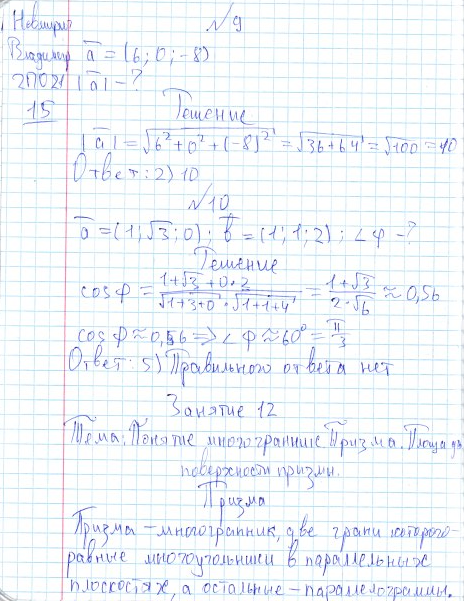 №9
Владимир a = (6; 0; -8)
2П021 |a| - ?
15
Решение
|a| = √6² + 0² + (-8)² = √36 + 64 = √100 = 10
Ответ: 2) 10
№10
a = (1; √3; 0); b = (1; 1; 2); ∠φ - ?
Решение
cos φ = 1+√3+0·2 / √1+3+0 · √1+1+4 = 1+√3 / 2·√6 ≈ 0,56
cos φ ≈ 0,56 => ∠φ ≈ 60° = π/3
Ответ: 5) Правильного ответа нет
Занятие 12
Тема: Понятие многогранник. Призма. Площадь
поверхности призмы.
Призма
Призма - многогранник, две грани которого-
равные многоугольники в параллельных
плоскостях, а остальные - параллелограммы.